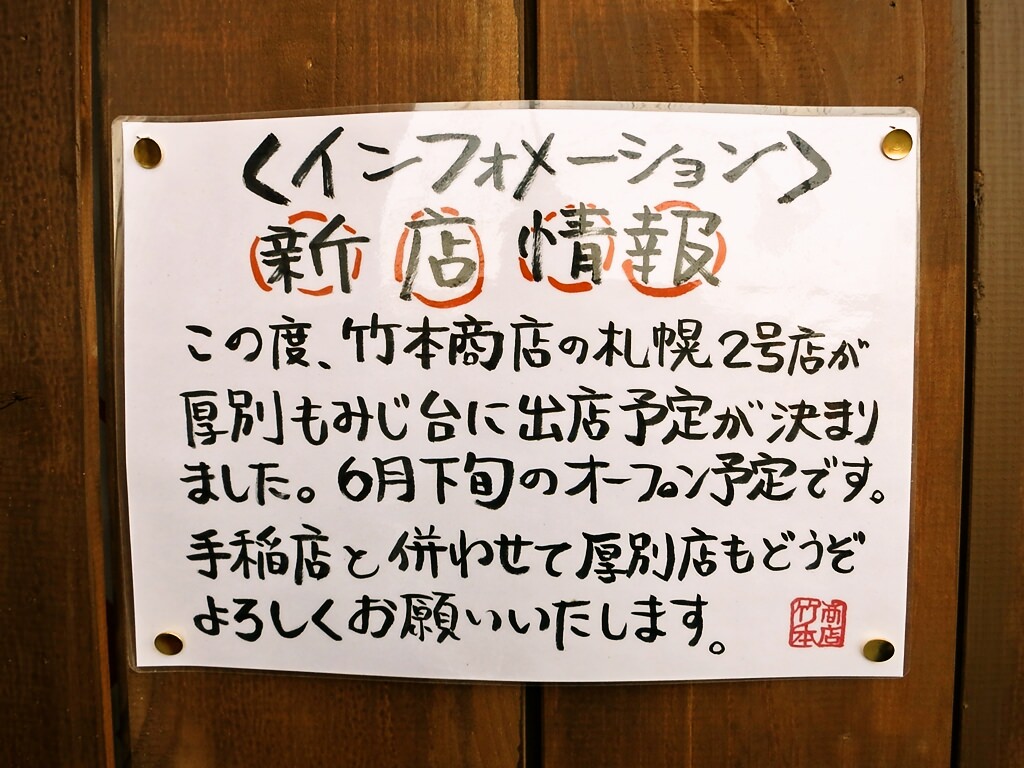 〈インフォメーション〉
新店情報
この度、竹本商店の札幌2号店が
厚別もみじ台に出店予定が決まり
ました。6月下旬のオープン予定です。
手稲店と併わせて厚別店もどうぞ
よろしくお願いいたします。
竹本商店